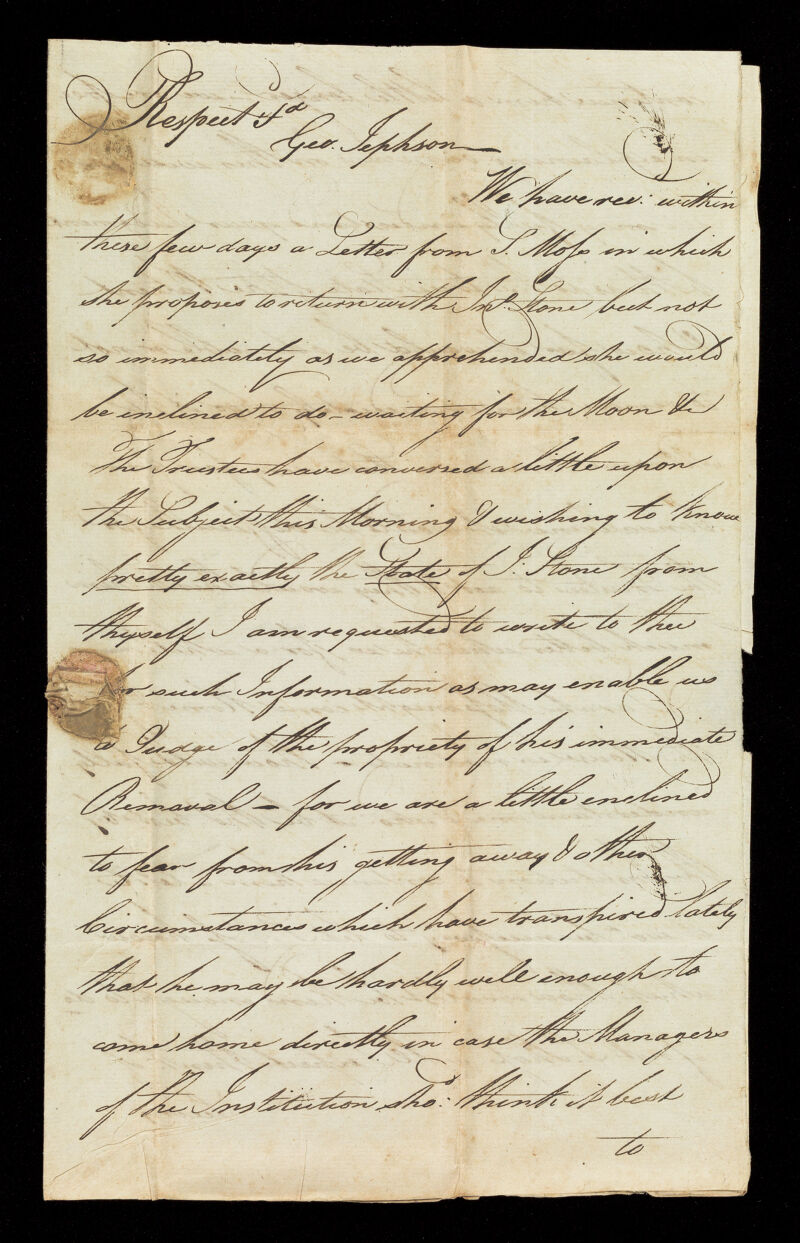 Respectd
Geo. Jephson
We have rec: within
these few days a Letter from S. Moss in which
she proposes to return with Jno. Stone but not
so immediately as we apprehended she would
be inclined to do - waiting for the Moon &c
The Trustees have conversed a little upon
the Subject this Morning & wishing to know
pretty exactly the State of J. Stone from
thyself I am requested to write to thee
for such Information as may enable us
to Judge of the propriety of his immediate
Removal – for we are a little enclined
to fear from his getting away & other
Circumstances which have transpired lately
that he may be hardly well enough to
come home directly in case the Managers
of the Institution shod: think it best
to